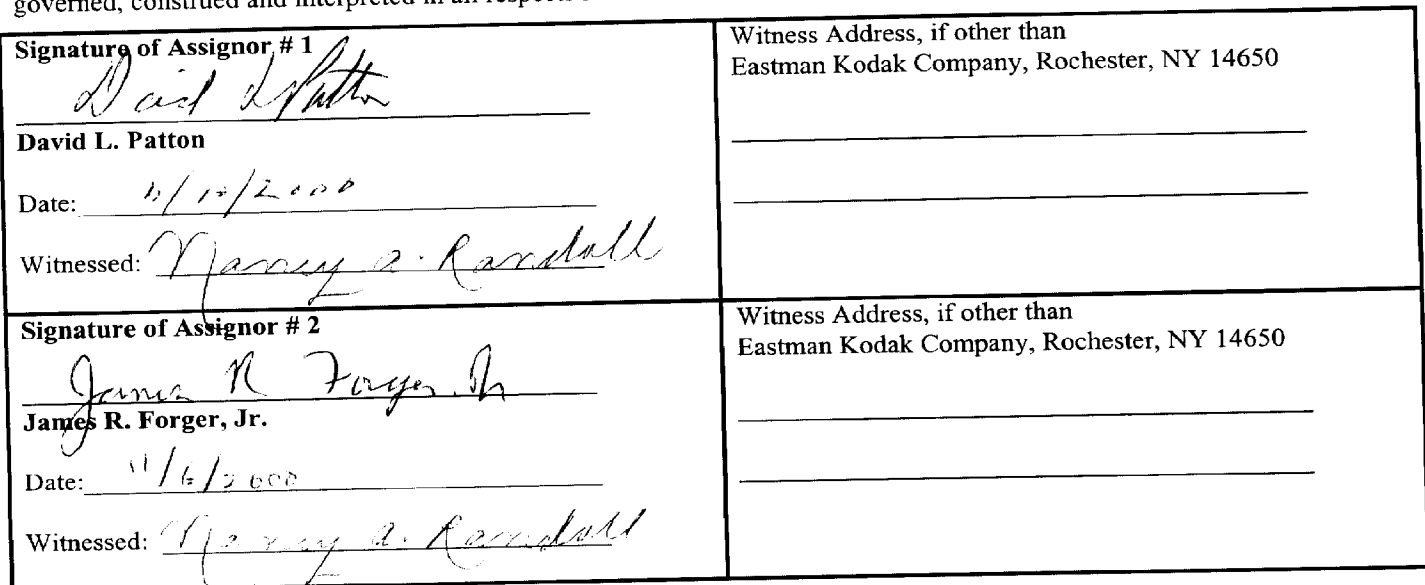 governed, construed and interpreted in all respects
Signature of Assignor # 1
David L Patton
David L. Patton
Date: 11/10/2000
Witnessed: Nancy A. Randall
Witness Address, if other than
Eastman Kodak Company, Rochester, NY 14650
Signature of Assignor # 2
James R Forger Jr
James R. Forger, Jr.
Date: 11/6/2000
Witnessed: Nancy A. Randall
Witness Address, if other than
Eastman Kodak Company, Rochester, NY 14650